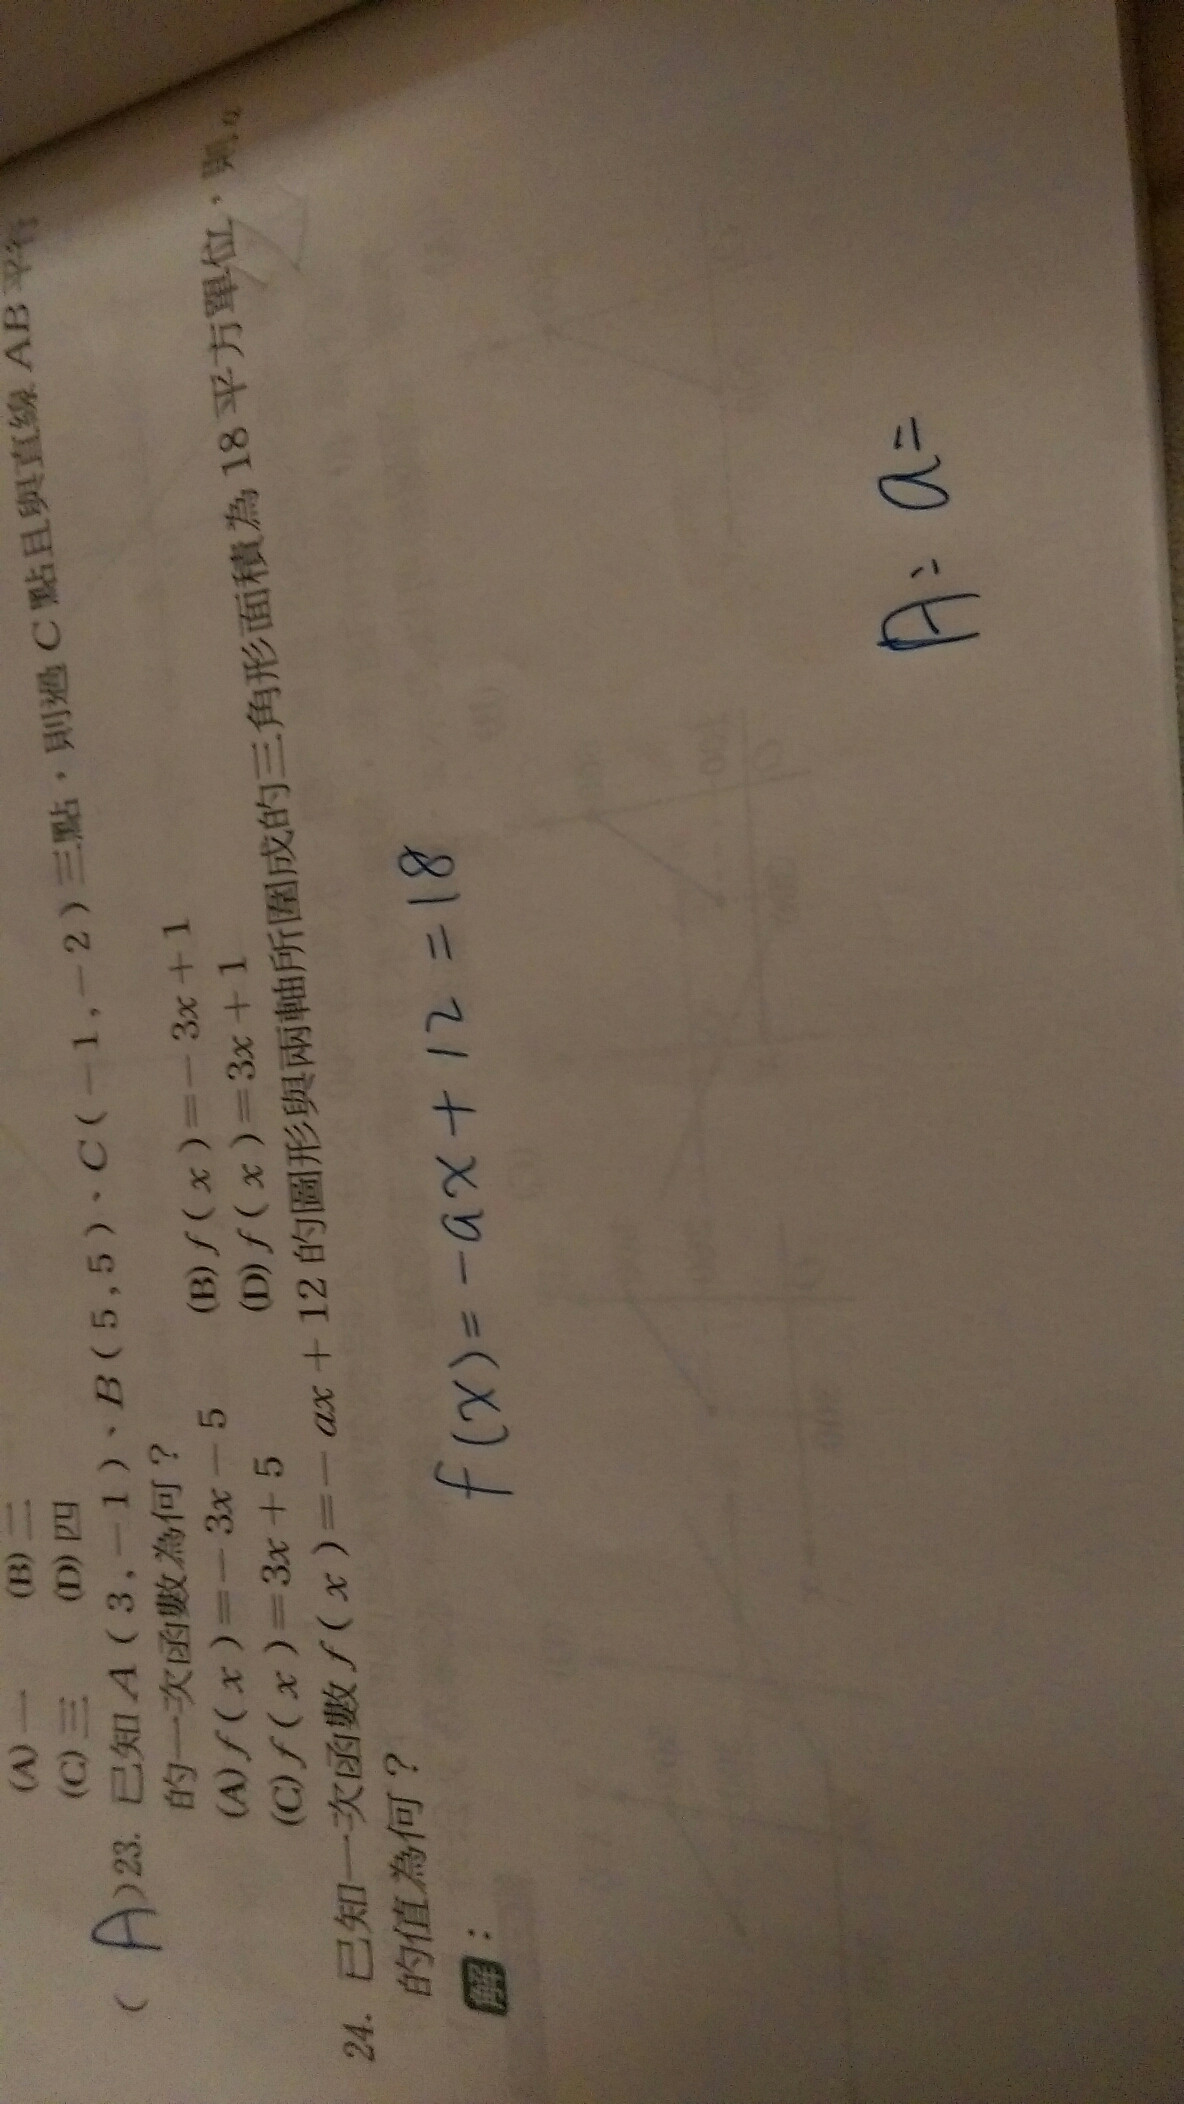 (A)一 (B)二
(C)三 (D)四
( A )23. 已知 A ( 3 , －1 )、B ( 5 , 5 )、C ( －1 , －2 ) 三點，則過 C 點且與直線 AB 平行
的一次函數為何？
(A) f ( x )＝－3x－5 (B) f ( x )＝－3x＋1
(C) f ( x )＝3x＋5 (D) f ( x )＝3x＋1
24. 已知一次函數 f ( x )＝－ax＋12 的圖形與兩軸所圍成的三角形面積為 18 平方單位，則 a
的值為何？
解：
f(x)=-ax+12=18
A: a=